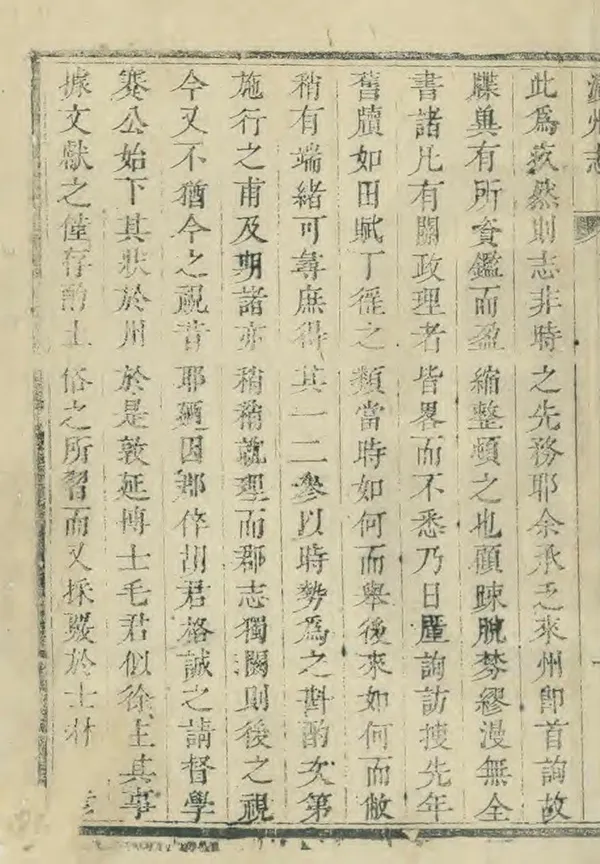 州志
此為疚然則志非時之先務耶余承乏來州即首詢故
牒與有所資鑑而盈縮整頓之也顧踈脫棼繆漫無全
書諸凡有關政理者皆畧而不悉乃日廑詢訪搜先年
舊牘如田賦丁徭之類當時如何而舉後來如何而敝
稍有端緒可尋庶得其一二參以時勢為之斟酌次第
施行之甫及期諸亦稍稍就理而郡志獨闕則後之視
今又不猶今之視昔耶廼因郡倅胡君格誠之請督學
蹇公始下其狀於州於是敦延博士毛君似徐主其事
據文獻之僅存酌土俗之所習而又採殘於士林